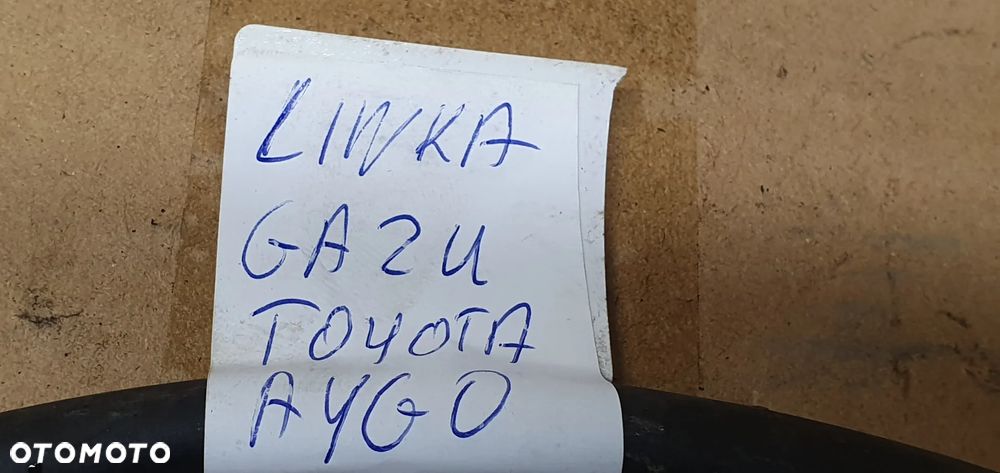 LINKA
GAZU
TOYOTA
AYGO
OTOMOTO